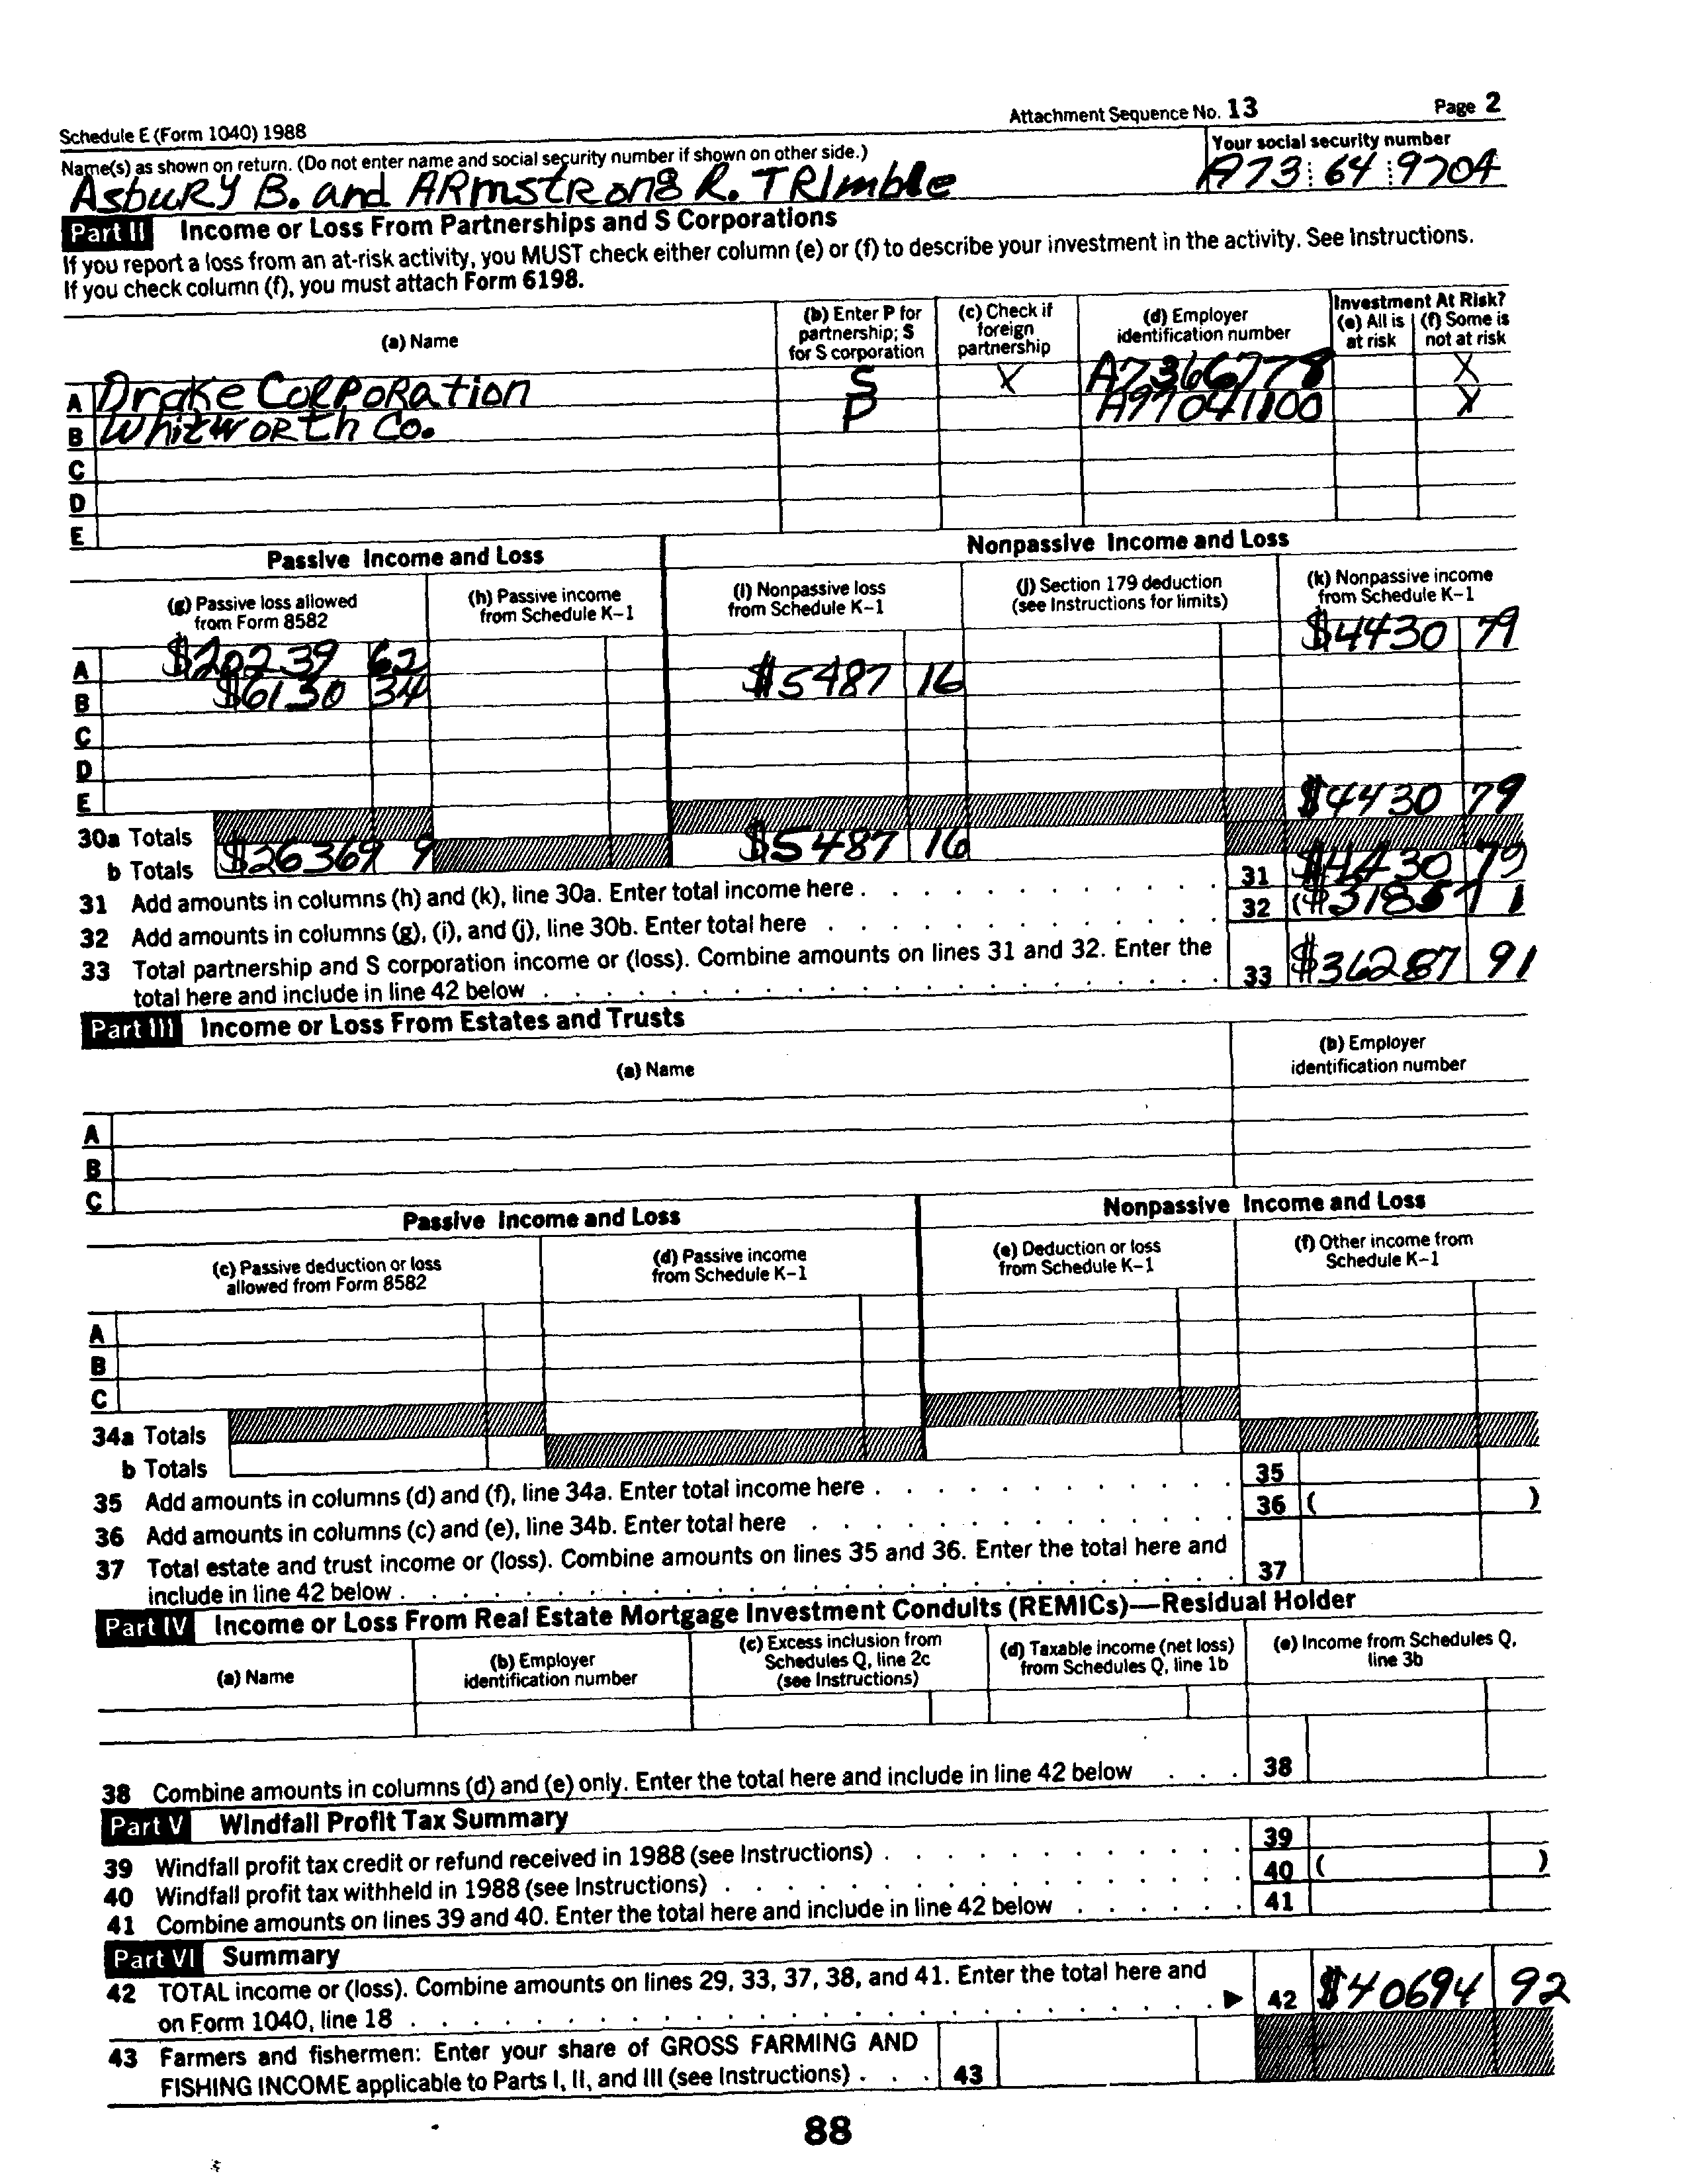 Schedule E (Form 1040) 1988 Attachment Sequence No. 13 Page 2
Name(s) as shown on return. (Do not enter name and social security number if shown on other side.) Your social security number
Asbury B. and Armstrong R. Trimble A73 64 9704
Part II Income or Loss From Partnerships and S Corporations
If you report a loss from an at-risk activity, you MUST check either column (e) or (f) to describe your investment in the activity. See Instructions.
If you check column (f), you must attach Form 6198.
(a) Name (b) Enter P for partnership; S for S corporation (c) Check if foreign partnership (d) Employer identification number Investment At Risk? (e) All is at risk (f) Some is not at risk
A Drake Corporation S X A7366778 X
B Whitworth Co. P A97041100 X
C
D
E
Passive Income and Loss Nonpassive Income and Loss
(g) Passive loss allowed from Form 8582 (h) Passive income from Schedule K-1 (i) Nonpassive loss from Schedule K-1 (j) Section 179 deduction (see Instructions for limits) (k) Nonpassive income from Schedule K-1
A $20239 62 $4430 79
B $6130 34 $5487 16
C
D
E
30a Totals $4430 79
b Totals $26369 9 $5487 16
31 Add amounts in columns (h) and (k), line 30a. Enter total income here 31 $4430 79
32 Add amounts in columns (g), (i), and (j), line 30b. Enter total here 32 ($3185 7 1
33 Total partnership and S corporation income or (loss). Combine amounts on lines 31 and 32. Enter the
total here and include in line 42 below 33 $36287 91
Part III Income or Loss From Estates and Trusts
(a) Name (b) Employer identification number
A
B
C
Passive Income and Loss Nonpassive Income and Loss
(c) Passive deduction or loss allowed from Form 8582 (d) Passive income from Schedule K-1 (e) Deduction or loss from Schedule K-1 (f) Other income from Schedule K-1
A
B
C
34a Totals
b Totals
35 Add amounts in columns (d) and (f), line 34a. Enter total income here 35
36 Add amounts in columns (c) and (e), line 34b. Enter total here 36 ( )
37 Total estate and trust income or (loss). Combine amounts on lines 35 and 36. Enter the total here and
include in line 42 below 37
Part IV Income or Loss From Real Estate Mortgage Investment Conduits (REMICs)—Residual Holder
(a) Name (b) Employer identification number (c) Excess inclusion from Schedules Q, line 2c (see Instructions) (d) Taxable income (net loss) from Schedules Q, line 1b (e) Income from Schedules Q, line 3b
38 Combine amounts in columns (d) and (e) only. Enter the total here and include in line 42 below 38
Part V Windfall Profit Tax Summary
39 Windfall profit tax credit or refund received in 1988 (see Instructions) 39
40 Windfall profit tax withheld in 1988 (see Instructions) 40 ( )
41 Combine amounts on lines 39 and 40. Enter the total here and include in line 42 below 41
Part VI Summary
42 TOTAL income or (loss). Combine amounts on lines 29, 33, 37, 38, and 41. Enter the total here and
on Form 1040, line 18 ▶ 42 $40694 92
43 Farmers and fishermen: Enter your share of GROSS FARMING AND
FISHING INCOME applicable to Parts I, II, and III (see Instructions) 43
88